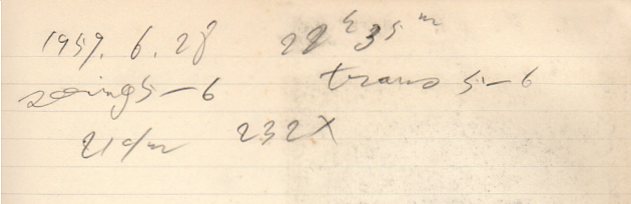 1959. 6. 28 22h 35m
seeing 5-6 trans 5-6
21cm 232X